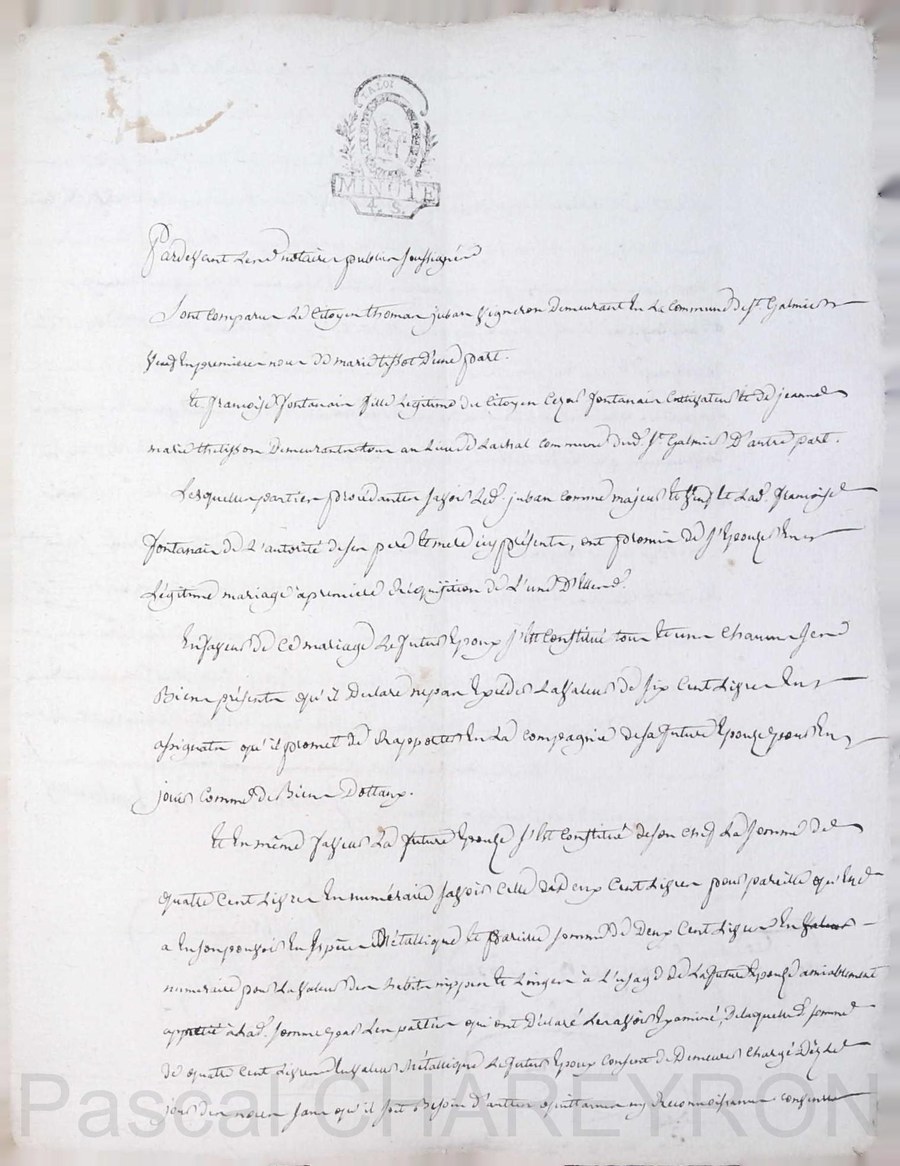 LA LOI
MINUTE
4. S.
Pardevant Les notaires publics soussignés
Sont comparus Le Citoyen thomas juban vigneron Demeurant En La Commune de St. Galmier
Veuf En premieres noces de marie tissot D'une part.
Et françoise fontanais fille Legitime du Citoyen fontanais Cultivateur et de jeanne
marie thelisson Demeurants tous au Lieu de Lachal commune dud. St. Galmier D'autre part.
Lesquelles parties procedantes savoir Led. juban comme majeur et veuf et Lad. françoise
fontanais de L'autorité de ses pere et mere icy présents, ont promis de s'Epouzer En
Légitime mariage à premiere Réquisition de L'une D'Elles.
En faveur de Ce mariage Le futur Epoux s'est Constitué tous et uns Chacuns ses
Biens présents qu'il Déclare ne pas Exceder La valeur de six Cent Livres En
assignats qu'il promet de Rapporter En La Compagnie de sa future Epouze pour En
jouir Comme de Biens Dottaux.
Et En même faveur La future Epouze s'est Constitué de son chef La somme de
quatre Cent Livres En numéraire savoir Celle de Deux Cent Livres pour pareille qu'Elle
a En son pouvoir En Espèces Métallique et pareille somme de Deux Cent Livres En valeur
numéraire pour La valeur des habits nippes et Linges à L'usage de La future Epouze amiablement
à Lad. somme par Les parties qui ont Déclaré Les avoir Examiné, De laquelle somme
de quatre Cent Livres En valeur Métallique Le futur Epoux Consent de Demeurer Chargé Dèz Le
jour des noces sans qu'il soit Besoin d'autres quittances ny Reconnoissances consent
Pascal CHAREYRON